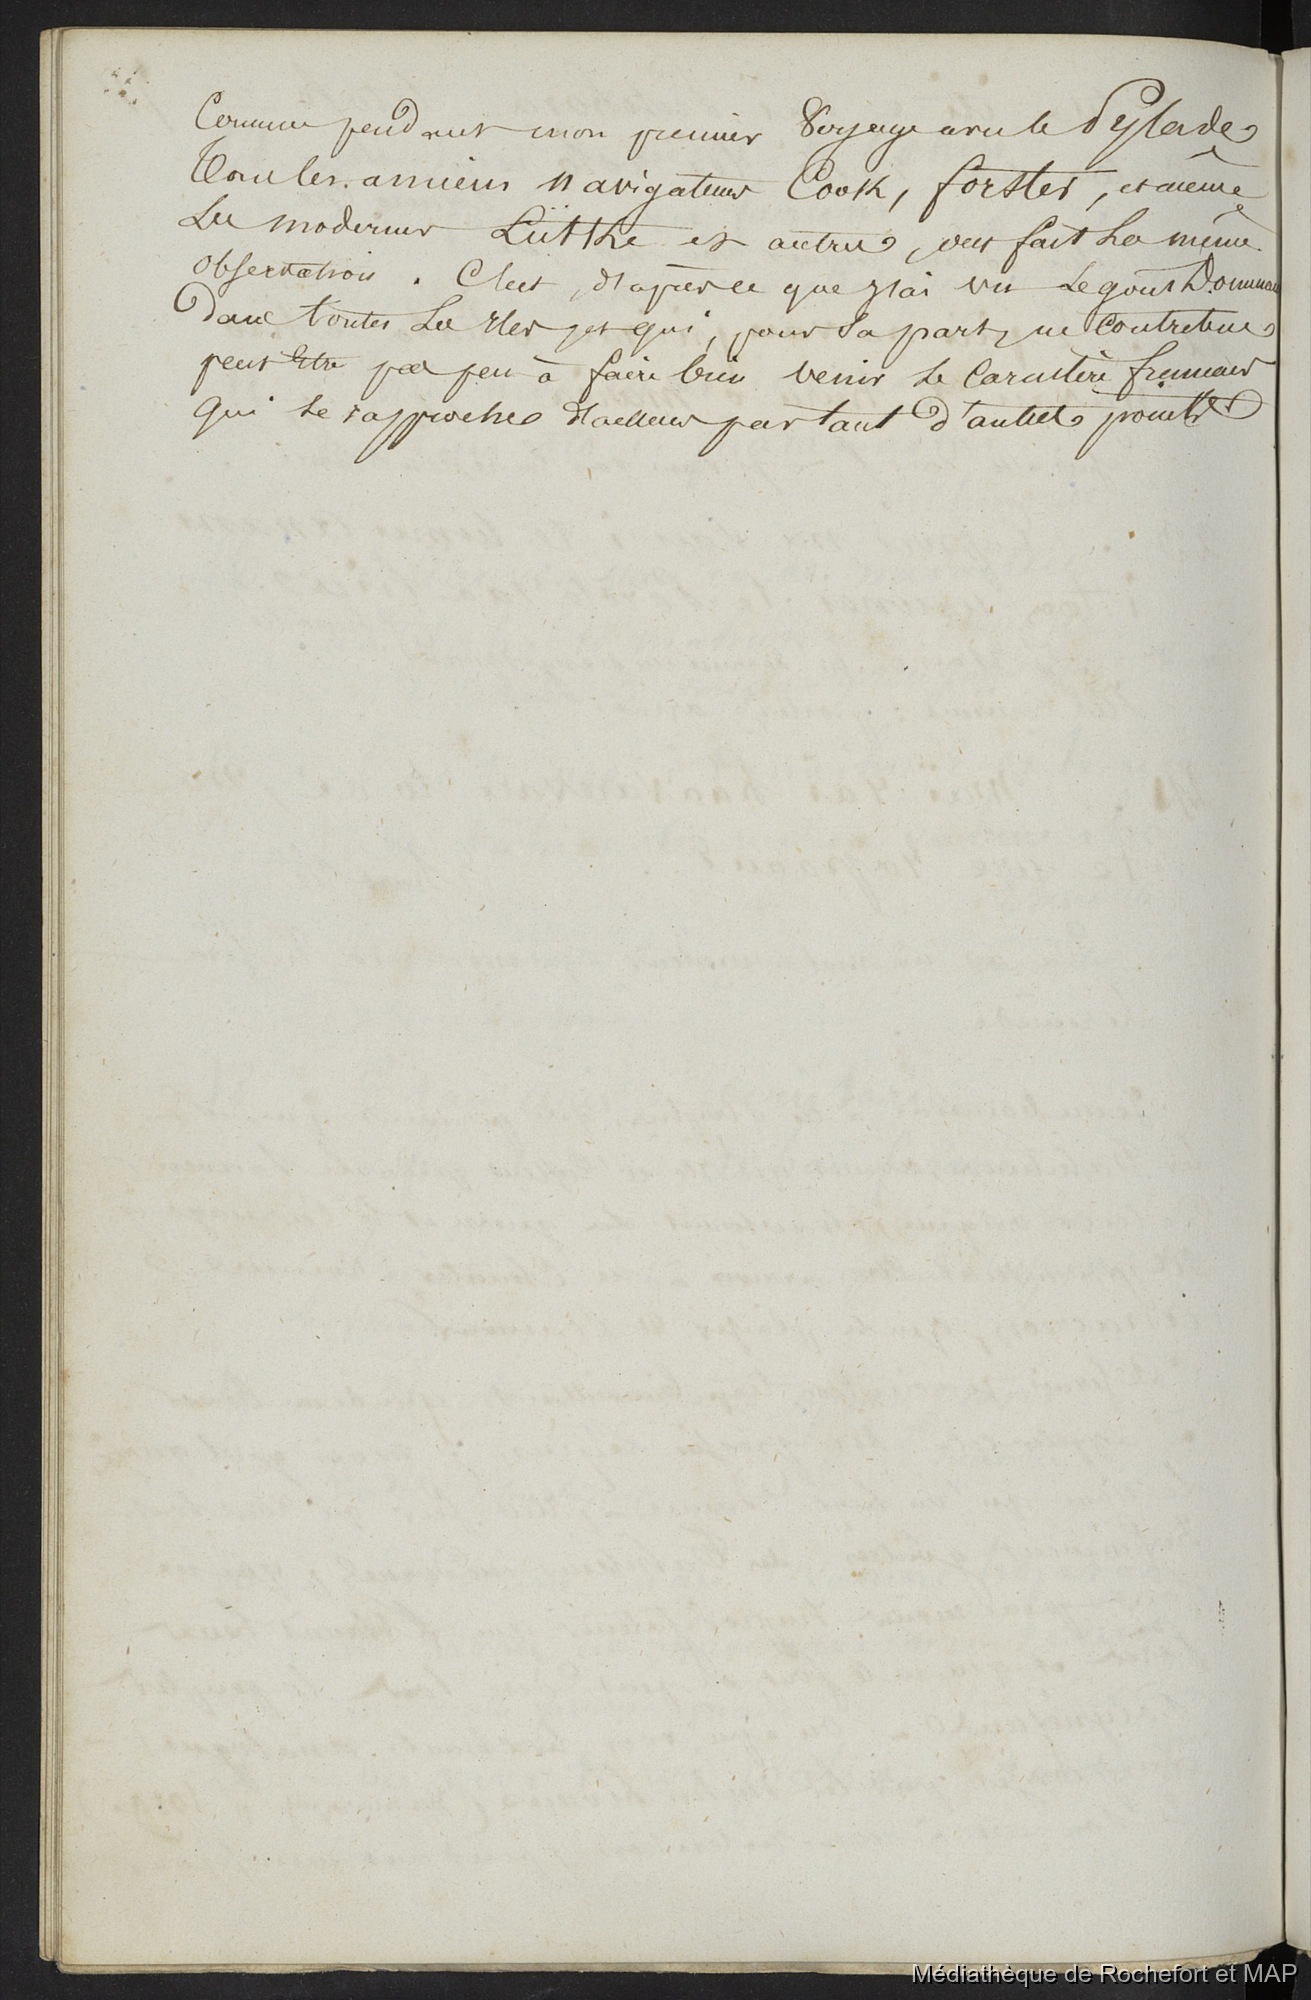 Comme pendant mon premier Voyage avec le Pylade,
Tous les anciens navigateurs Cook, forster, et même
Les modernes Lütke et autres, ont fait la même
observation. C'est, d'après ce que j'ai vu le gout Dominant
dans toutes Les Iles et qui, pour sa part, ne contribue
peut être pas peu à faire bien venir le Caractère français
qui se rapproche d'ailleurs par tant d'autres points
Médiathèque de Rochefort et MAP